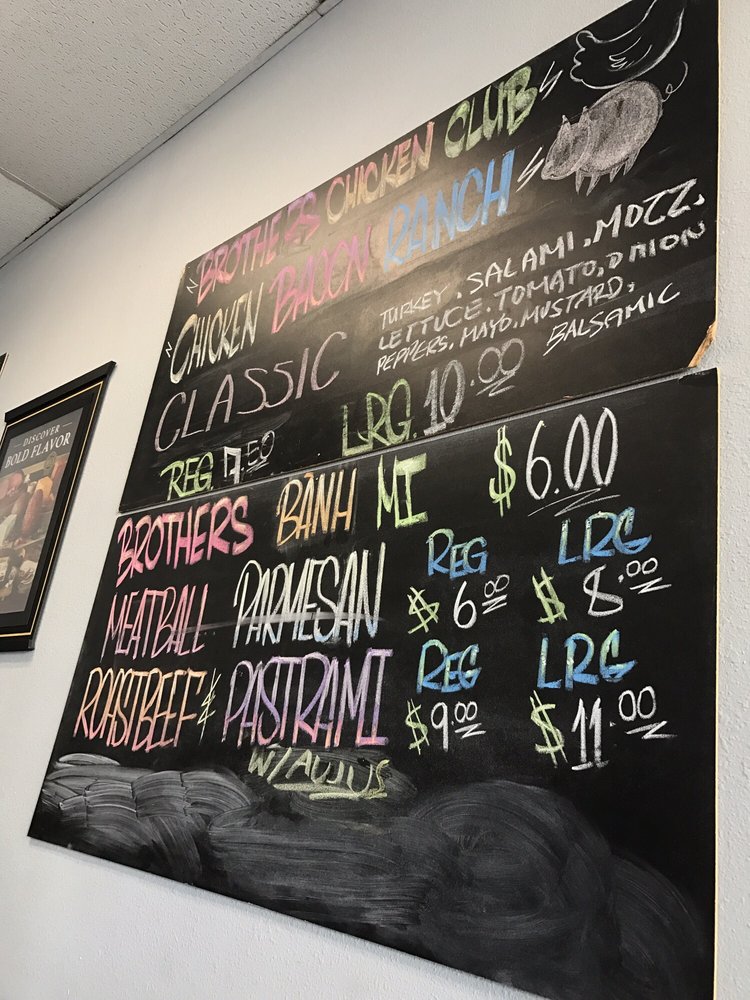 BROTHERS CHICKEN CLUB
CHICKEN BACON RANCH
CLASSIC
TURKEY. SALAMI. MOZZ.
LETTUCE. TOMATO, ONION
PEPPERS. MAYO. MUSTARD,
BALSAMIC
REG. 7.50
LRG. 10.00
BROTHERS BÀNH MI $6.00
REG LRG
MEATBALL PARMESAN $6.00 $8.00
REG LRG
ROASTBEEF & PASTRAMI $9.00 $11.00
W/ AUJUS
DISCOVER
BOLD FLAVOR